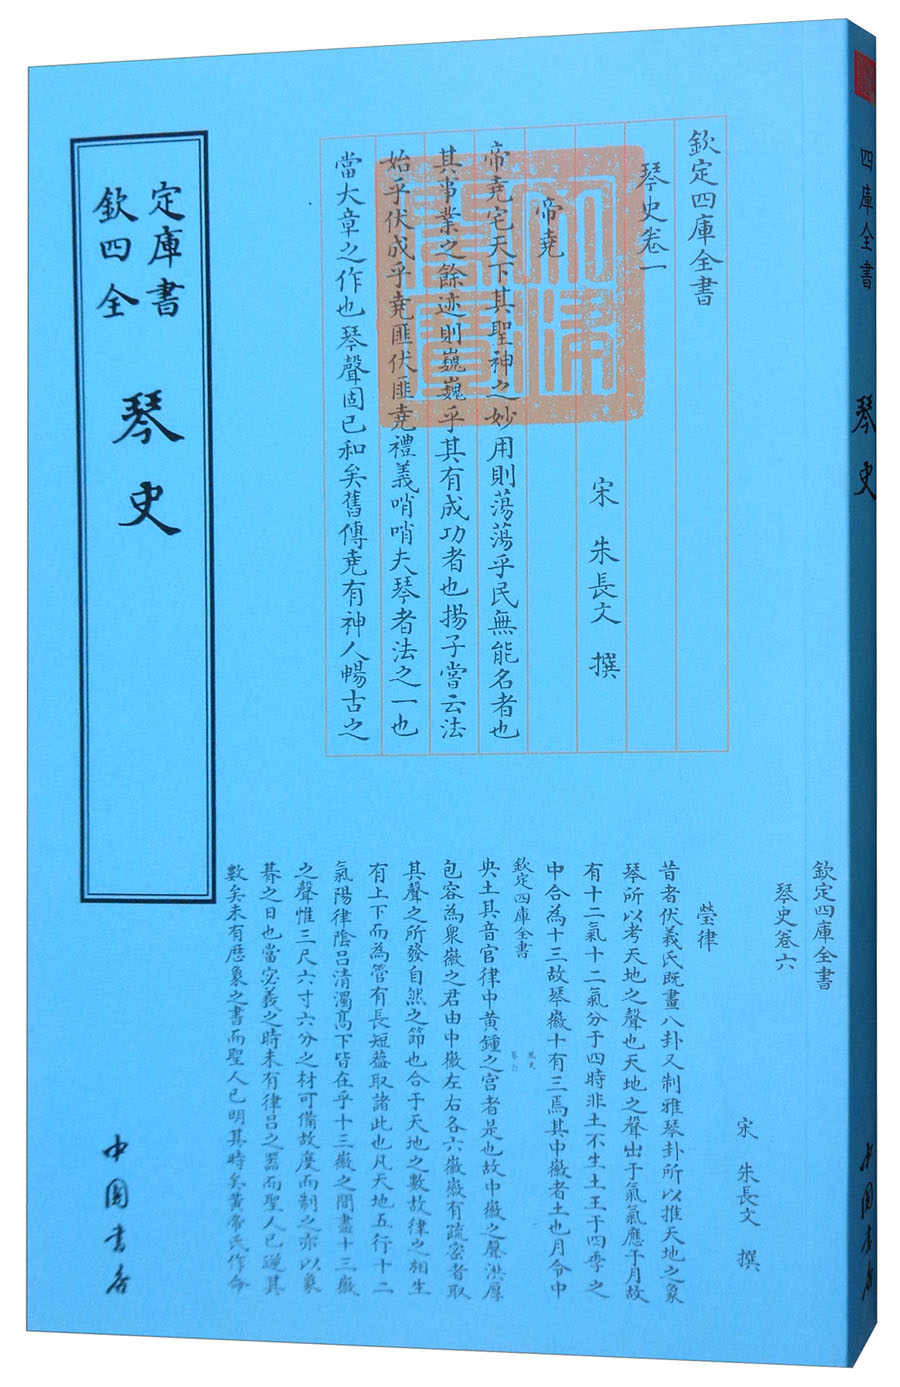 欽定四庫全書
琴史
中國書店
欽定四庫全書
琴史卷一
宋 朱長文 撰
帝堯
帝堯宅天下其聖神之妙用則蕩蕩乎民無能名者也
其事業之餘迹則巍巍乎其有成功者也揚子嘗云法
始乎伏成乎堯匪伏匪堯禮義哨哨夫琴者法之一也
當大章之作也琴聲固已和矣舊傳堯有神人暢古之
欽定四庫全書
琴史卷六
宋 朱長文 撰
瑩律
昔者伏羲氏既畫八卦又制雅琴卦所以推天地之象
琴所以考天地之聲也天地之聲出于氣氣應于月故
有十二氣十二氣分于四時非土不生土王于四季之
中合為十三故琴徽十有三焉其中徽者土也月令中
欽定四庫全書
央土其音宮律中黃鍾之宮者是也故中徽之聲洪厚
包容為衆徽之君由中徽左右各六徽徽有疏密者取
其聲之所發自然之節也合于天地之數故律之相生
有上下而為管有長短葢取諸此也凡天地五行十二
氣陽律陰呂清濁高下皆在乎十三徽之間盡十三徽
之聲惟三尺六寸六分之材可備故度而制之亦以象
朞之日也當宓羲之時未有律呂之器而聖人已逆其
數矣未有厯象之書而聖人已明其時矣黃帝氏作命
四庫全書
琴史
中國書店